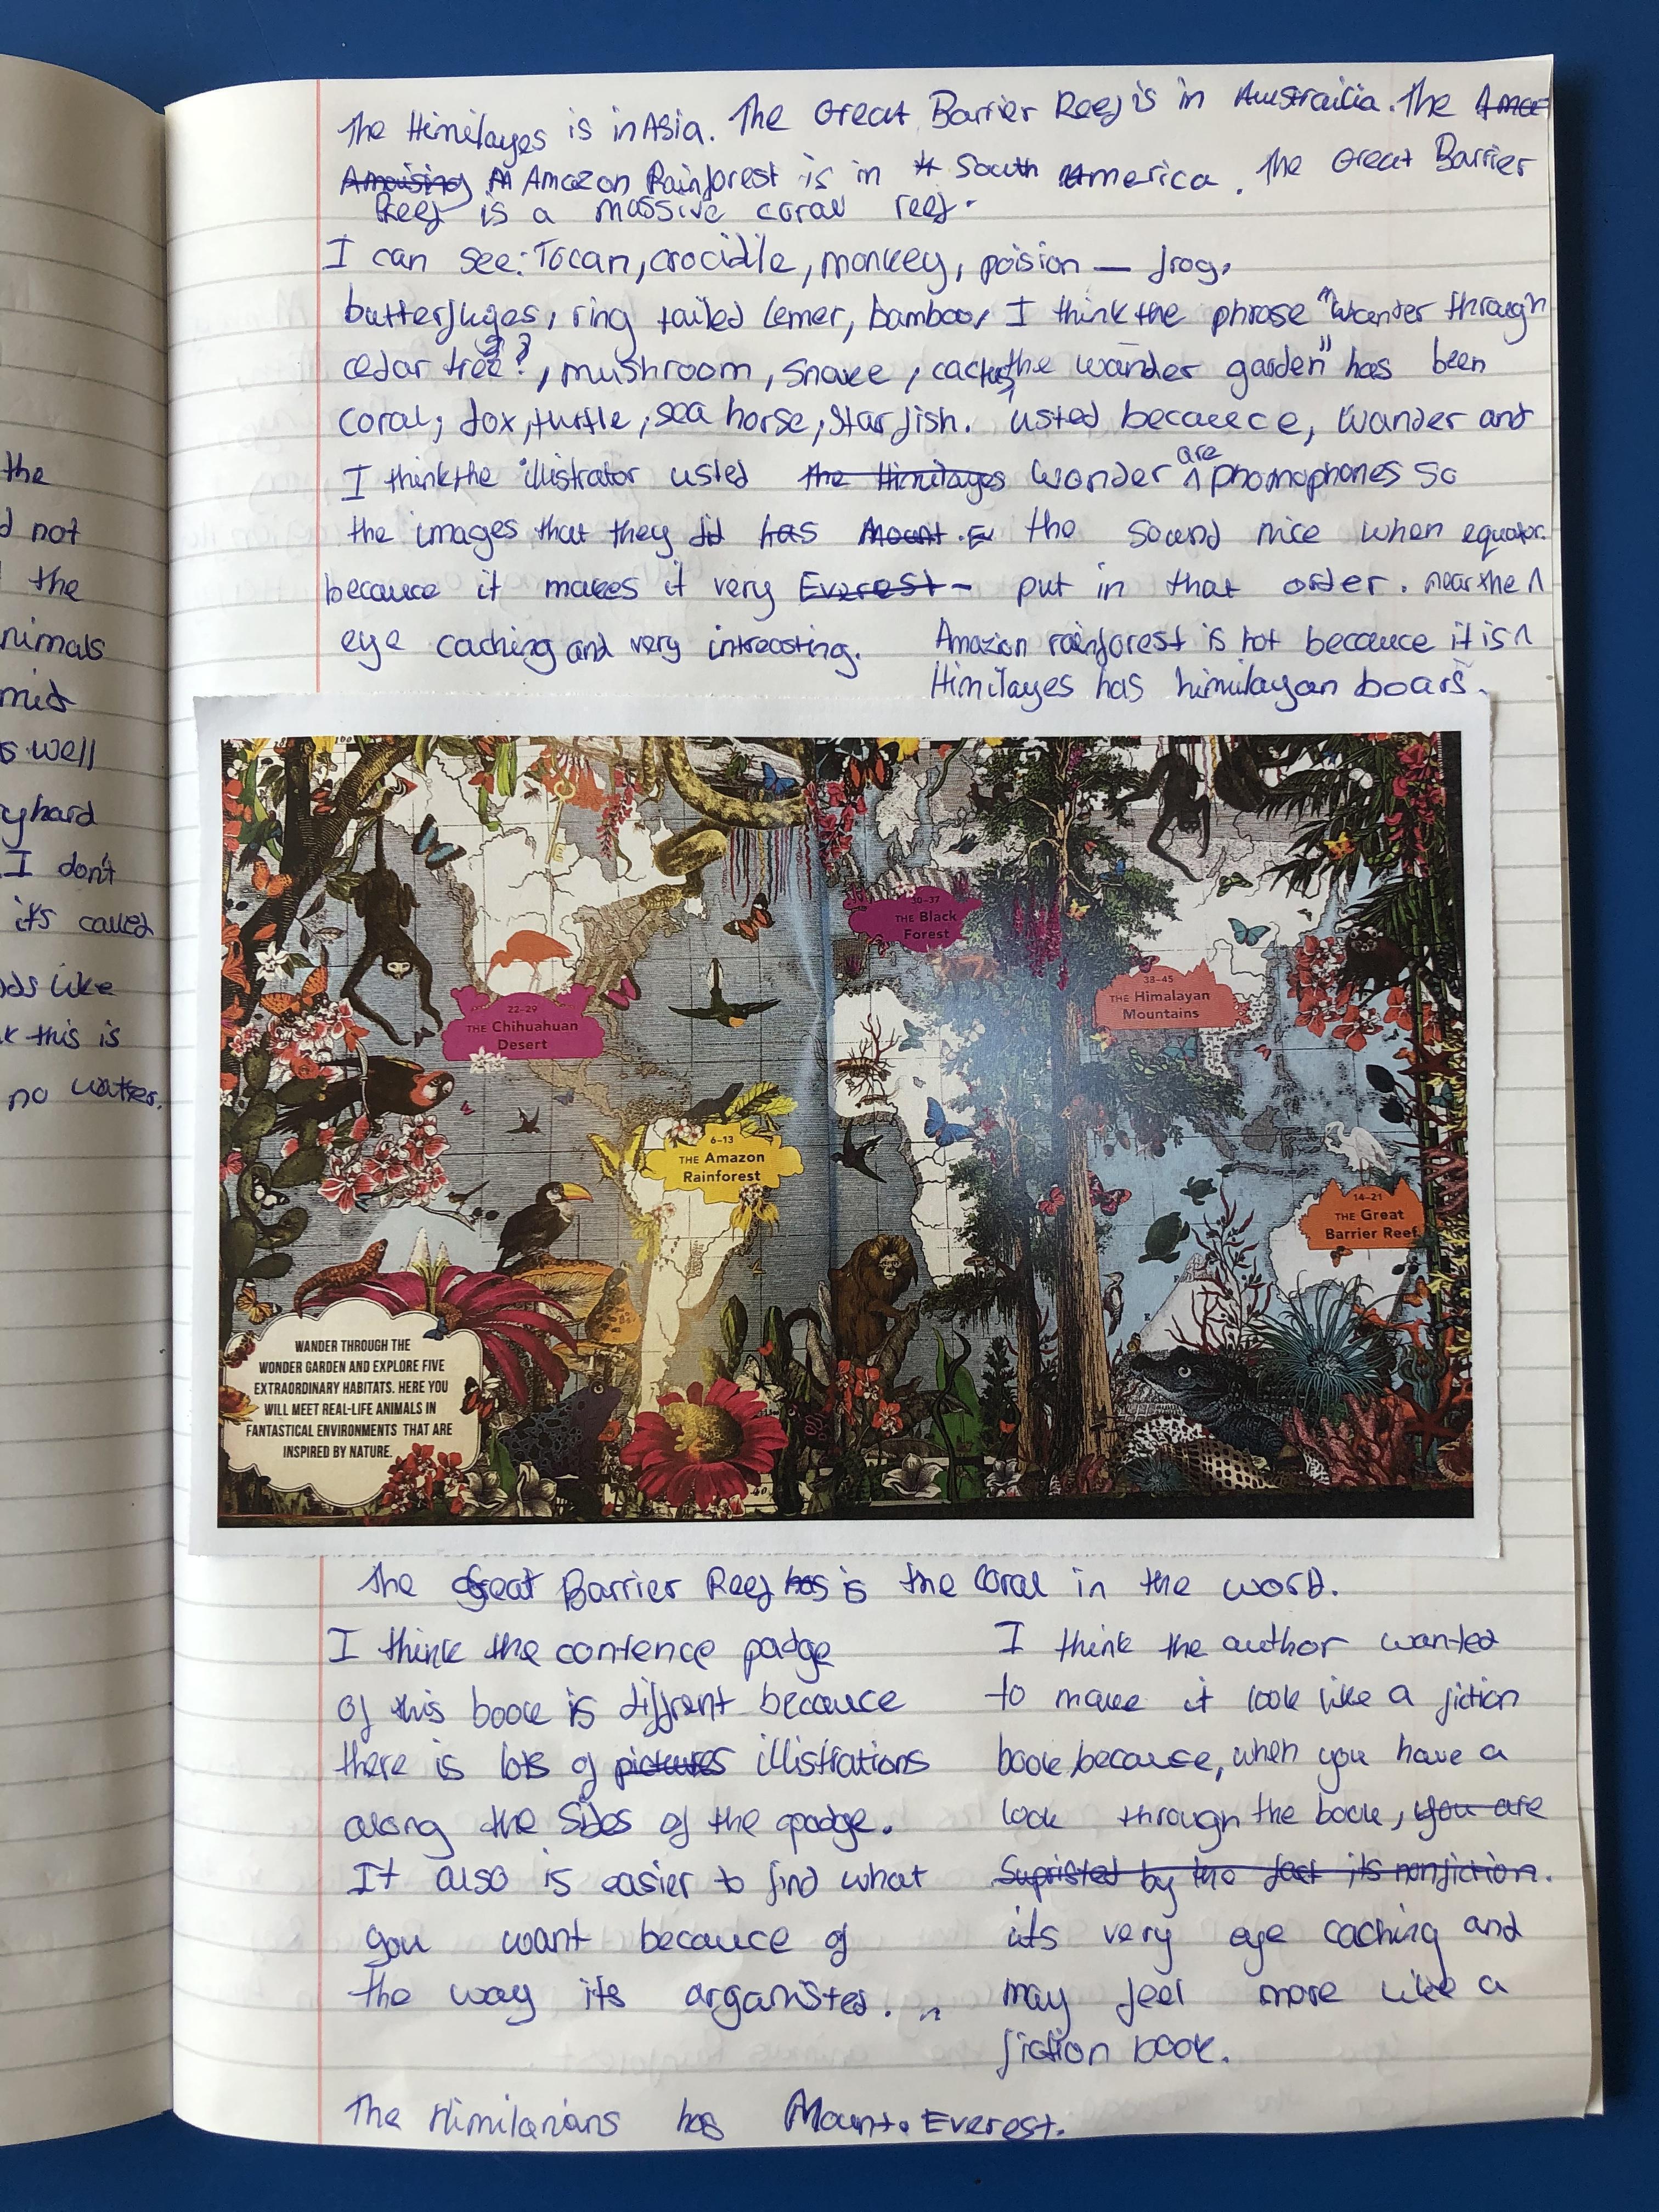 the
d not
the
nimals
mid
s well
y hard
I don't
its called
ds like
k this is
no watter.
The Himilayes is in Asia. The Great Barrier Reef is in Austrailia. The Amce
Amaising A Amazon Rainforest is in # South America. The Great Barrier
Reef is a massive coral reef.
I can see: Tocan, crocidile, monkey, poision — frog,
butterflyes, ring tailed lemer, bamboo,
cedar tree??, mushroom, snake, cactus,
coral, fox, turtle, sea horse, star fish.
I think the illistrator usted
the images that they did
because it makes it very
eye caching and very intreasting.
the Himilayes
has Mount. Ev
Everest -
I think the phrase "Wander through
the wander garden" has been
usted becauece, Wander and
Wonder are phomophones so
the sound nice when
put in that order.
Amazon rainforest is hot because it is near the equator.
Himilayes has himilayan boars.
30-37
THE Black
Forest
38-45
THE Himalayan
Mountains
22-29
THE Chihuahuan
Desert
6-13
THE Amazon
Rainforest
14-21
THE Great
Barrier Reef
WANDER THROUGH THE
WONDER GARDEN AND EXPLORE FIVE
EXTRAORDINARY HABITATS. HERE YOU
WILL MEET REAL-LIFE ANIMALS IN
FANTASTICAL ENVIRONMENTS THAT ARE
INSPIRED BY NATURE.
The Great Barrier Reef has is the coral in the word.
I think the contence padge
of this book is diffrent because
there is lots of pictures illistrations
along the sides of the padge.
It also is easier to find what
you want because of
the way its organisted.
I think the author wanted
to make it look like a fiction
book, because, when you have a
look through the book, you are
Supristed by the fact its nonfiction.
its very eye caching and
may feel more like a
fiction book.
The Himilanians has Mount. Everest.